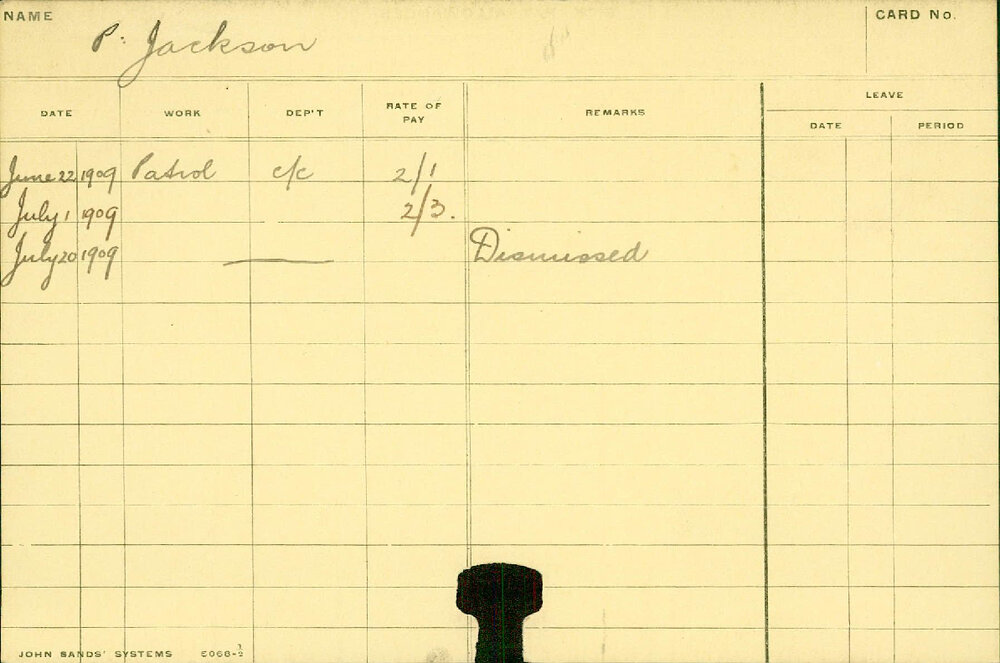 NAME P. Jackson CARD No.
DATE WORK DEP'T RATE OF PAY REMARKS LEAVE
DATE PERIOD
June 22 1909 Patrol c/c 2/1
July 1 1909 2/3.
July 20 1909 Dismissed
JOHN SANDS' SYSTEMS 5066-½